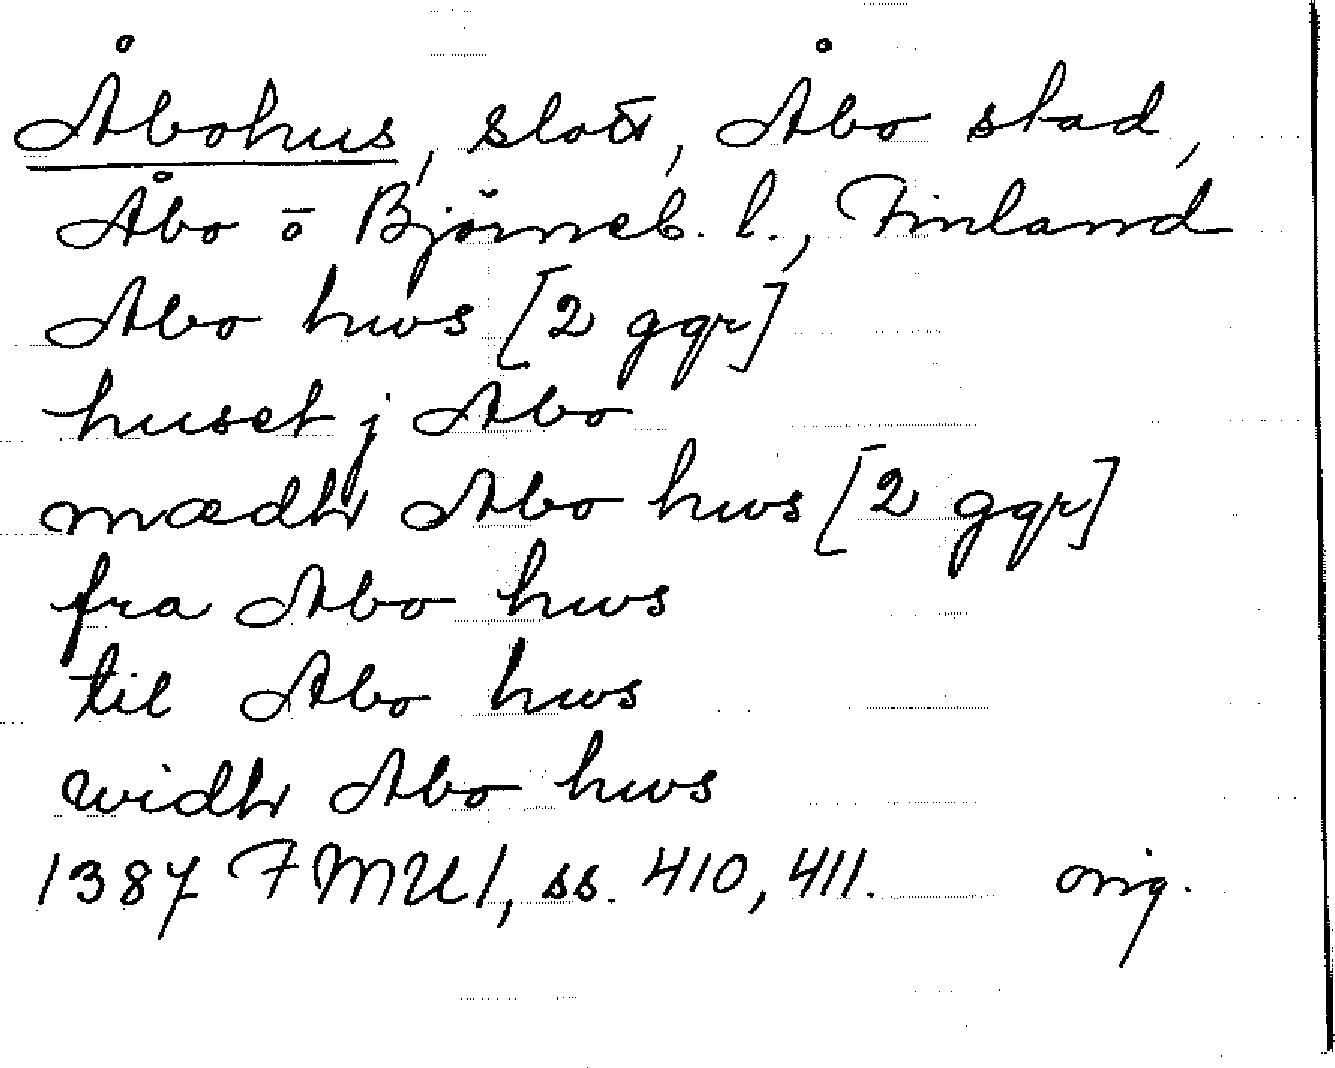 Åbohus, slott, Åbo stad,
Åbo o Björneb. l., Finland
Abo hws [2 ggr]
huset j Abo
mædhr Abo hws [2 ggr]
fra Abo hws
til Abo hws
widhr Abo hws
1387 FMU 1, ss. 410, 411. orig.